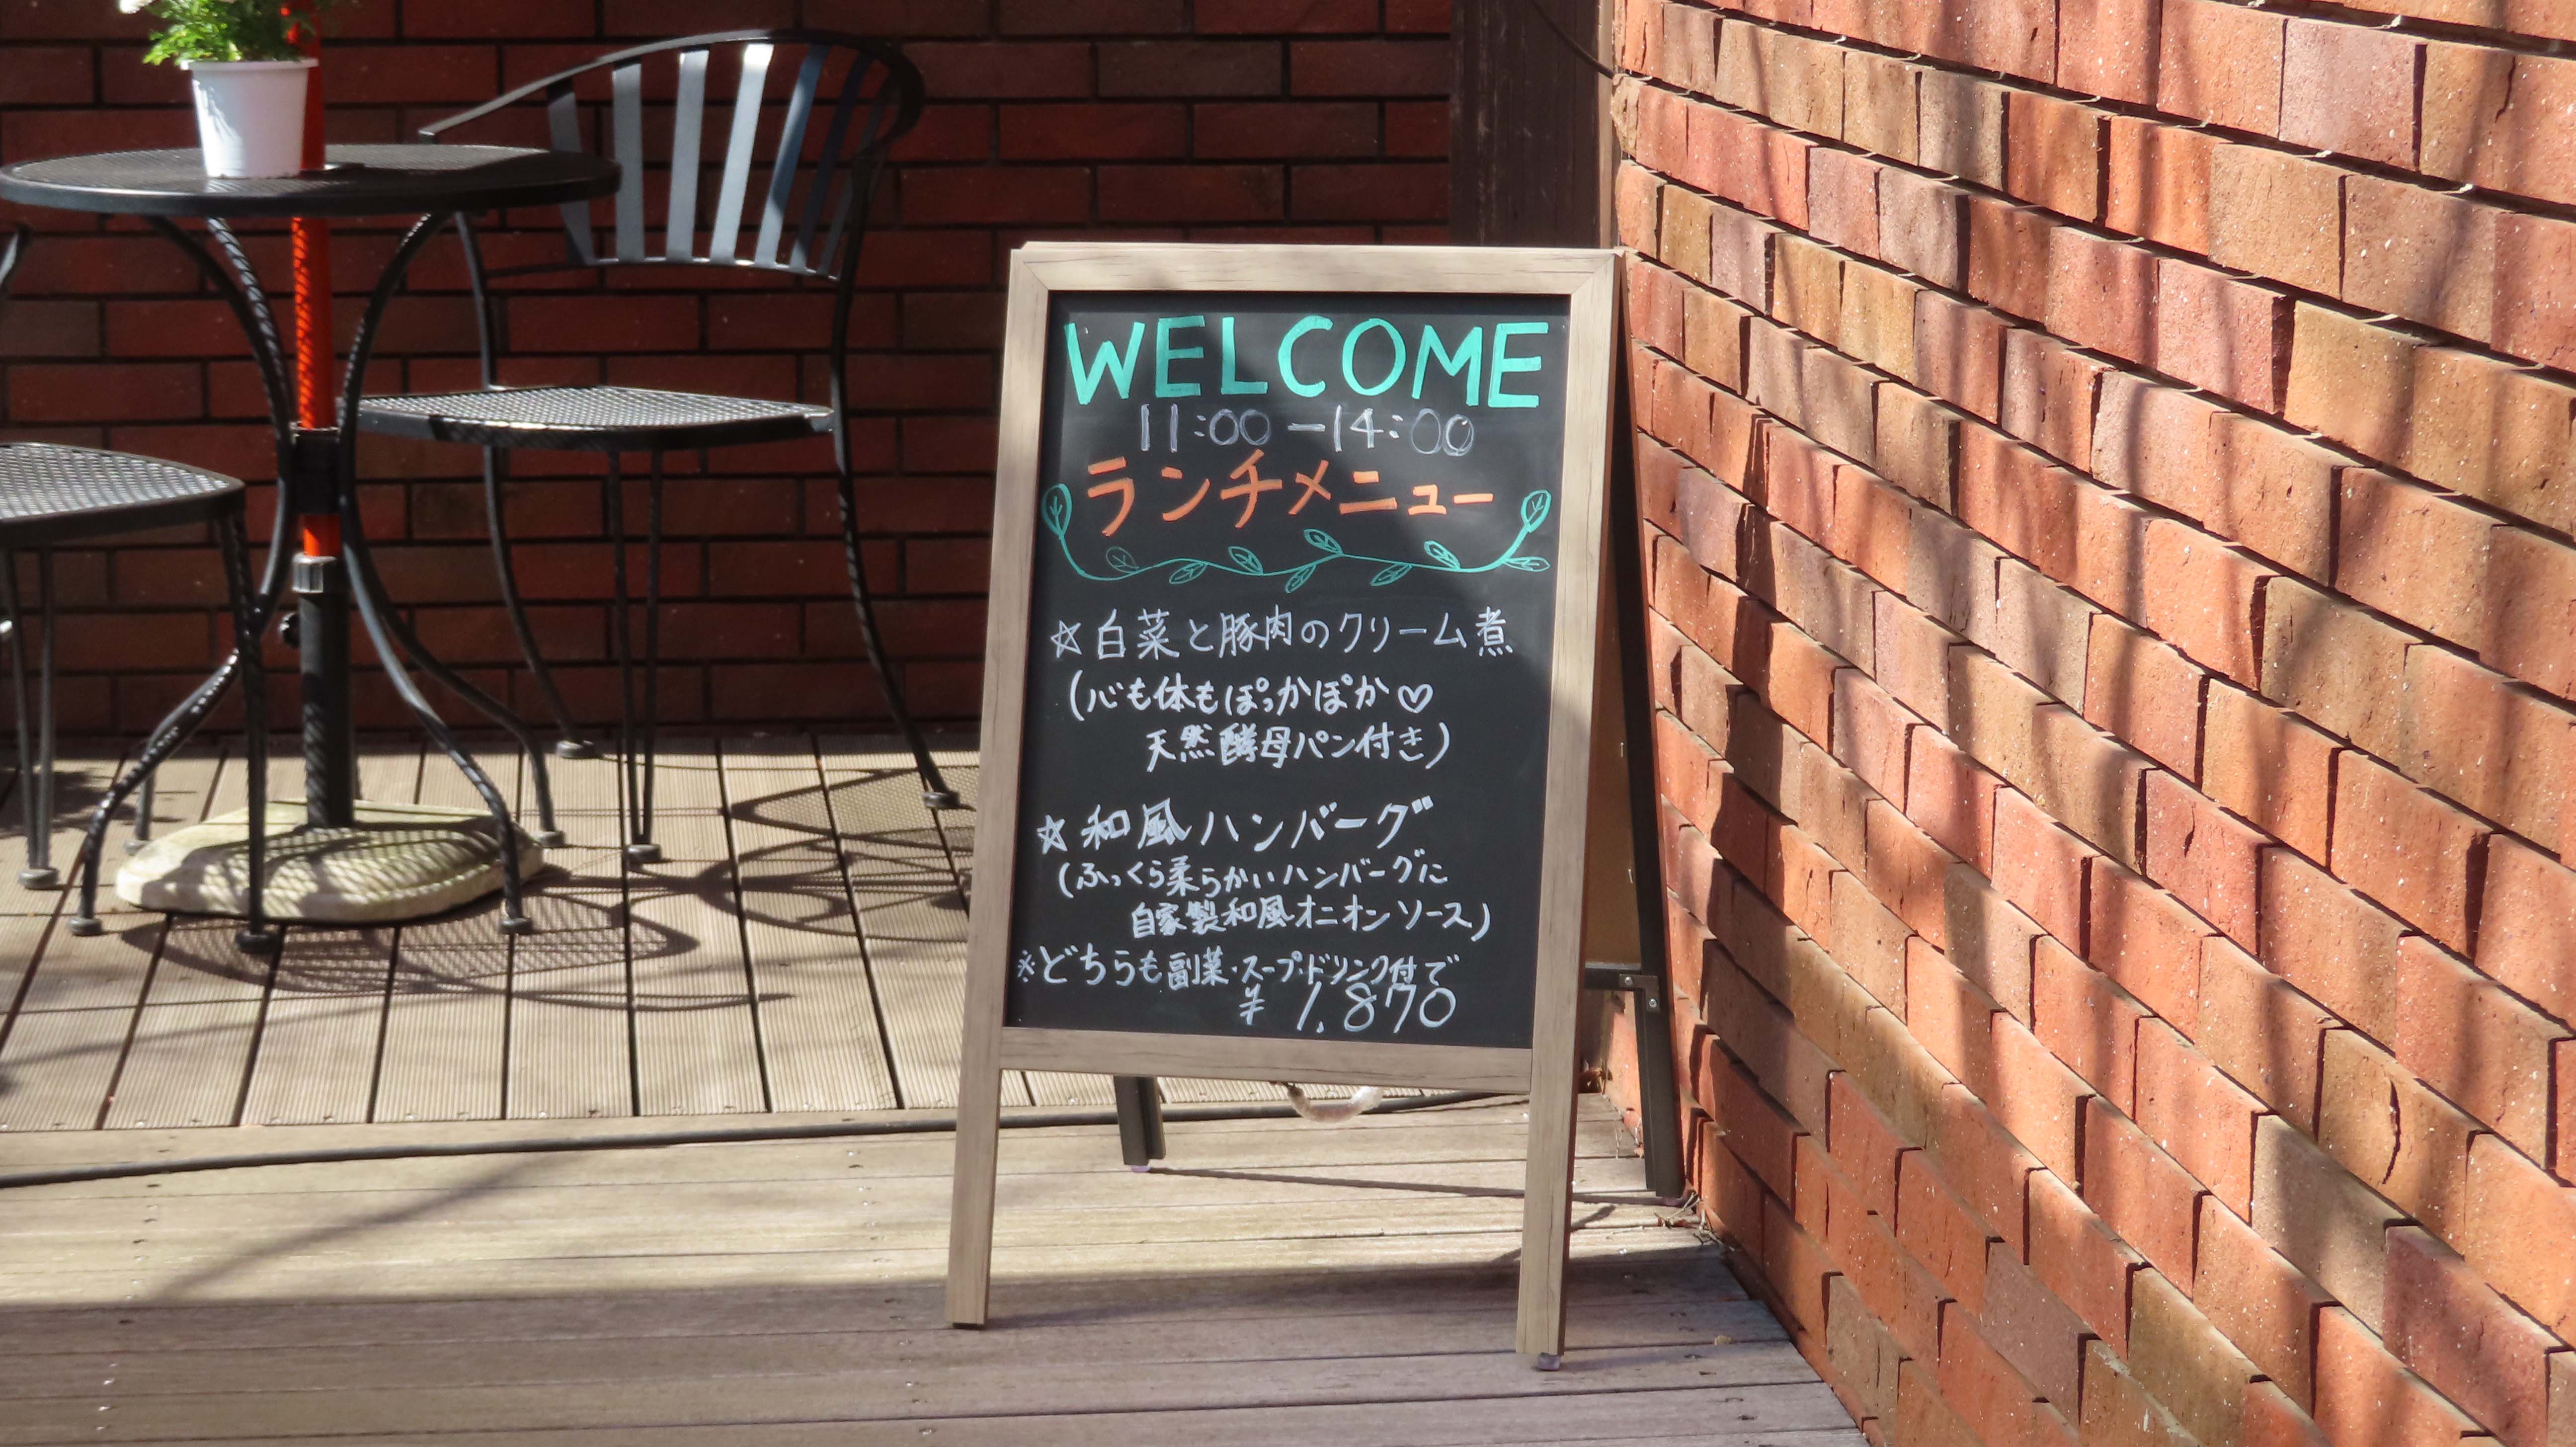 WELCOME
11:00-14:00
ランチメニュー
☆白菜と豚肉のクリーム煮
(心も体もぽっかぽか♡
天然酵母パン付き)
☆和風ハンバーグ
(ふっくら柔らかいハンバーグに
自家製和風オニオンソース)
※どちらも副菜・スープ・ドリンク付で
¥1,870